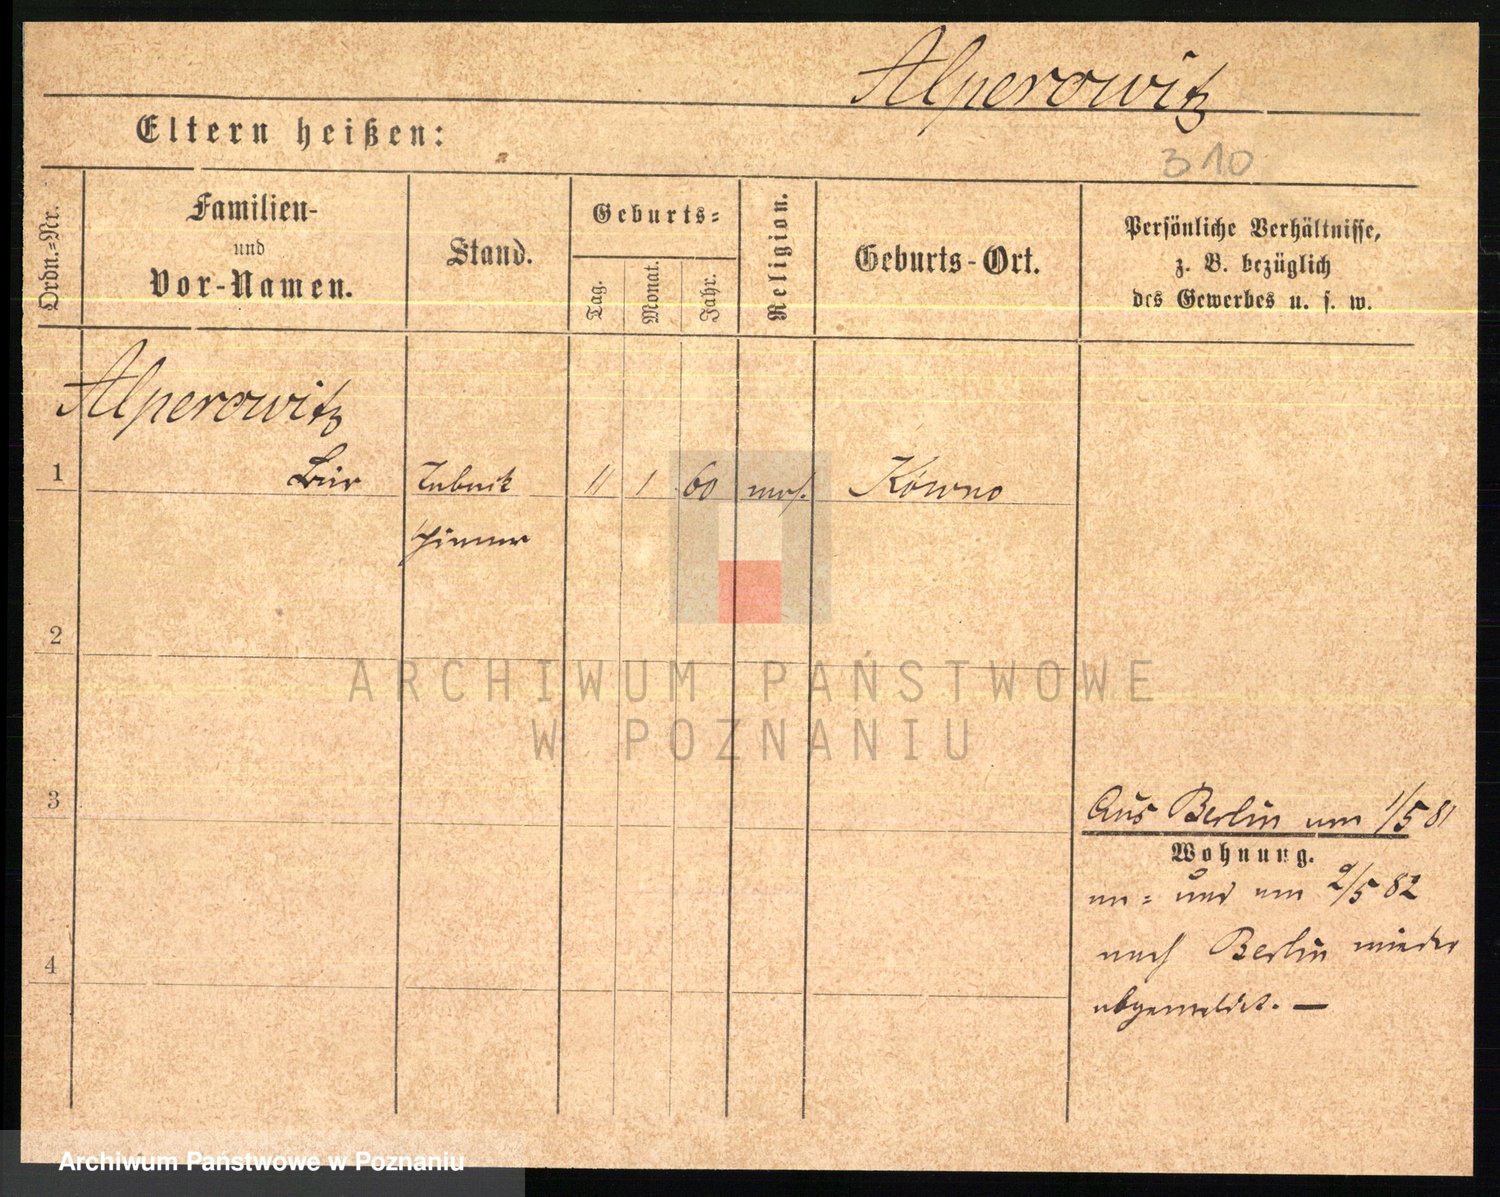 Alperowitz
Eltern heißen:
310
Ordn.=Nr.
Familien-
und
Vor-Namen.
Stand.
Geburts=
Tag.
Monat.
Jahr.
Religion.
Geburts-Ort.
Persönliche Verhältnisse,
z. B. bezüglich
des Gewerbes u. s. w.
Alperowitz
1 Bär 11 1 60 mos. Kowno
2
3
Aus Berlin am 1/5 81
Wohnung.
an= und am 2/5 82
nach Berlin wieder
4
abgemeldet. —
ARCHIWUM PAŃSTWOWE
W POZNANIU
Archiwum Państwowe w Poznaniu